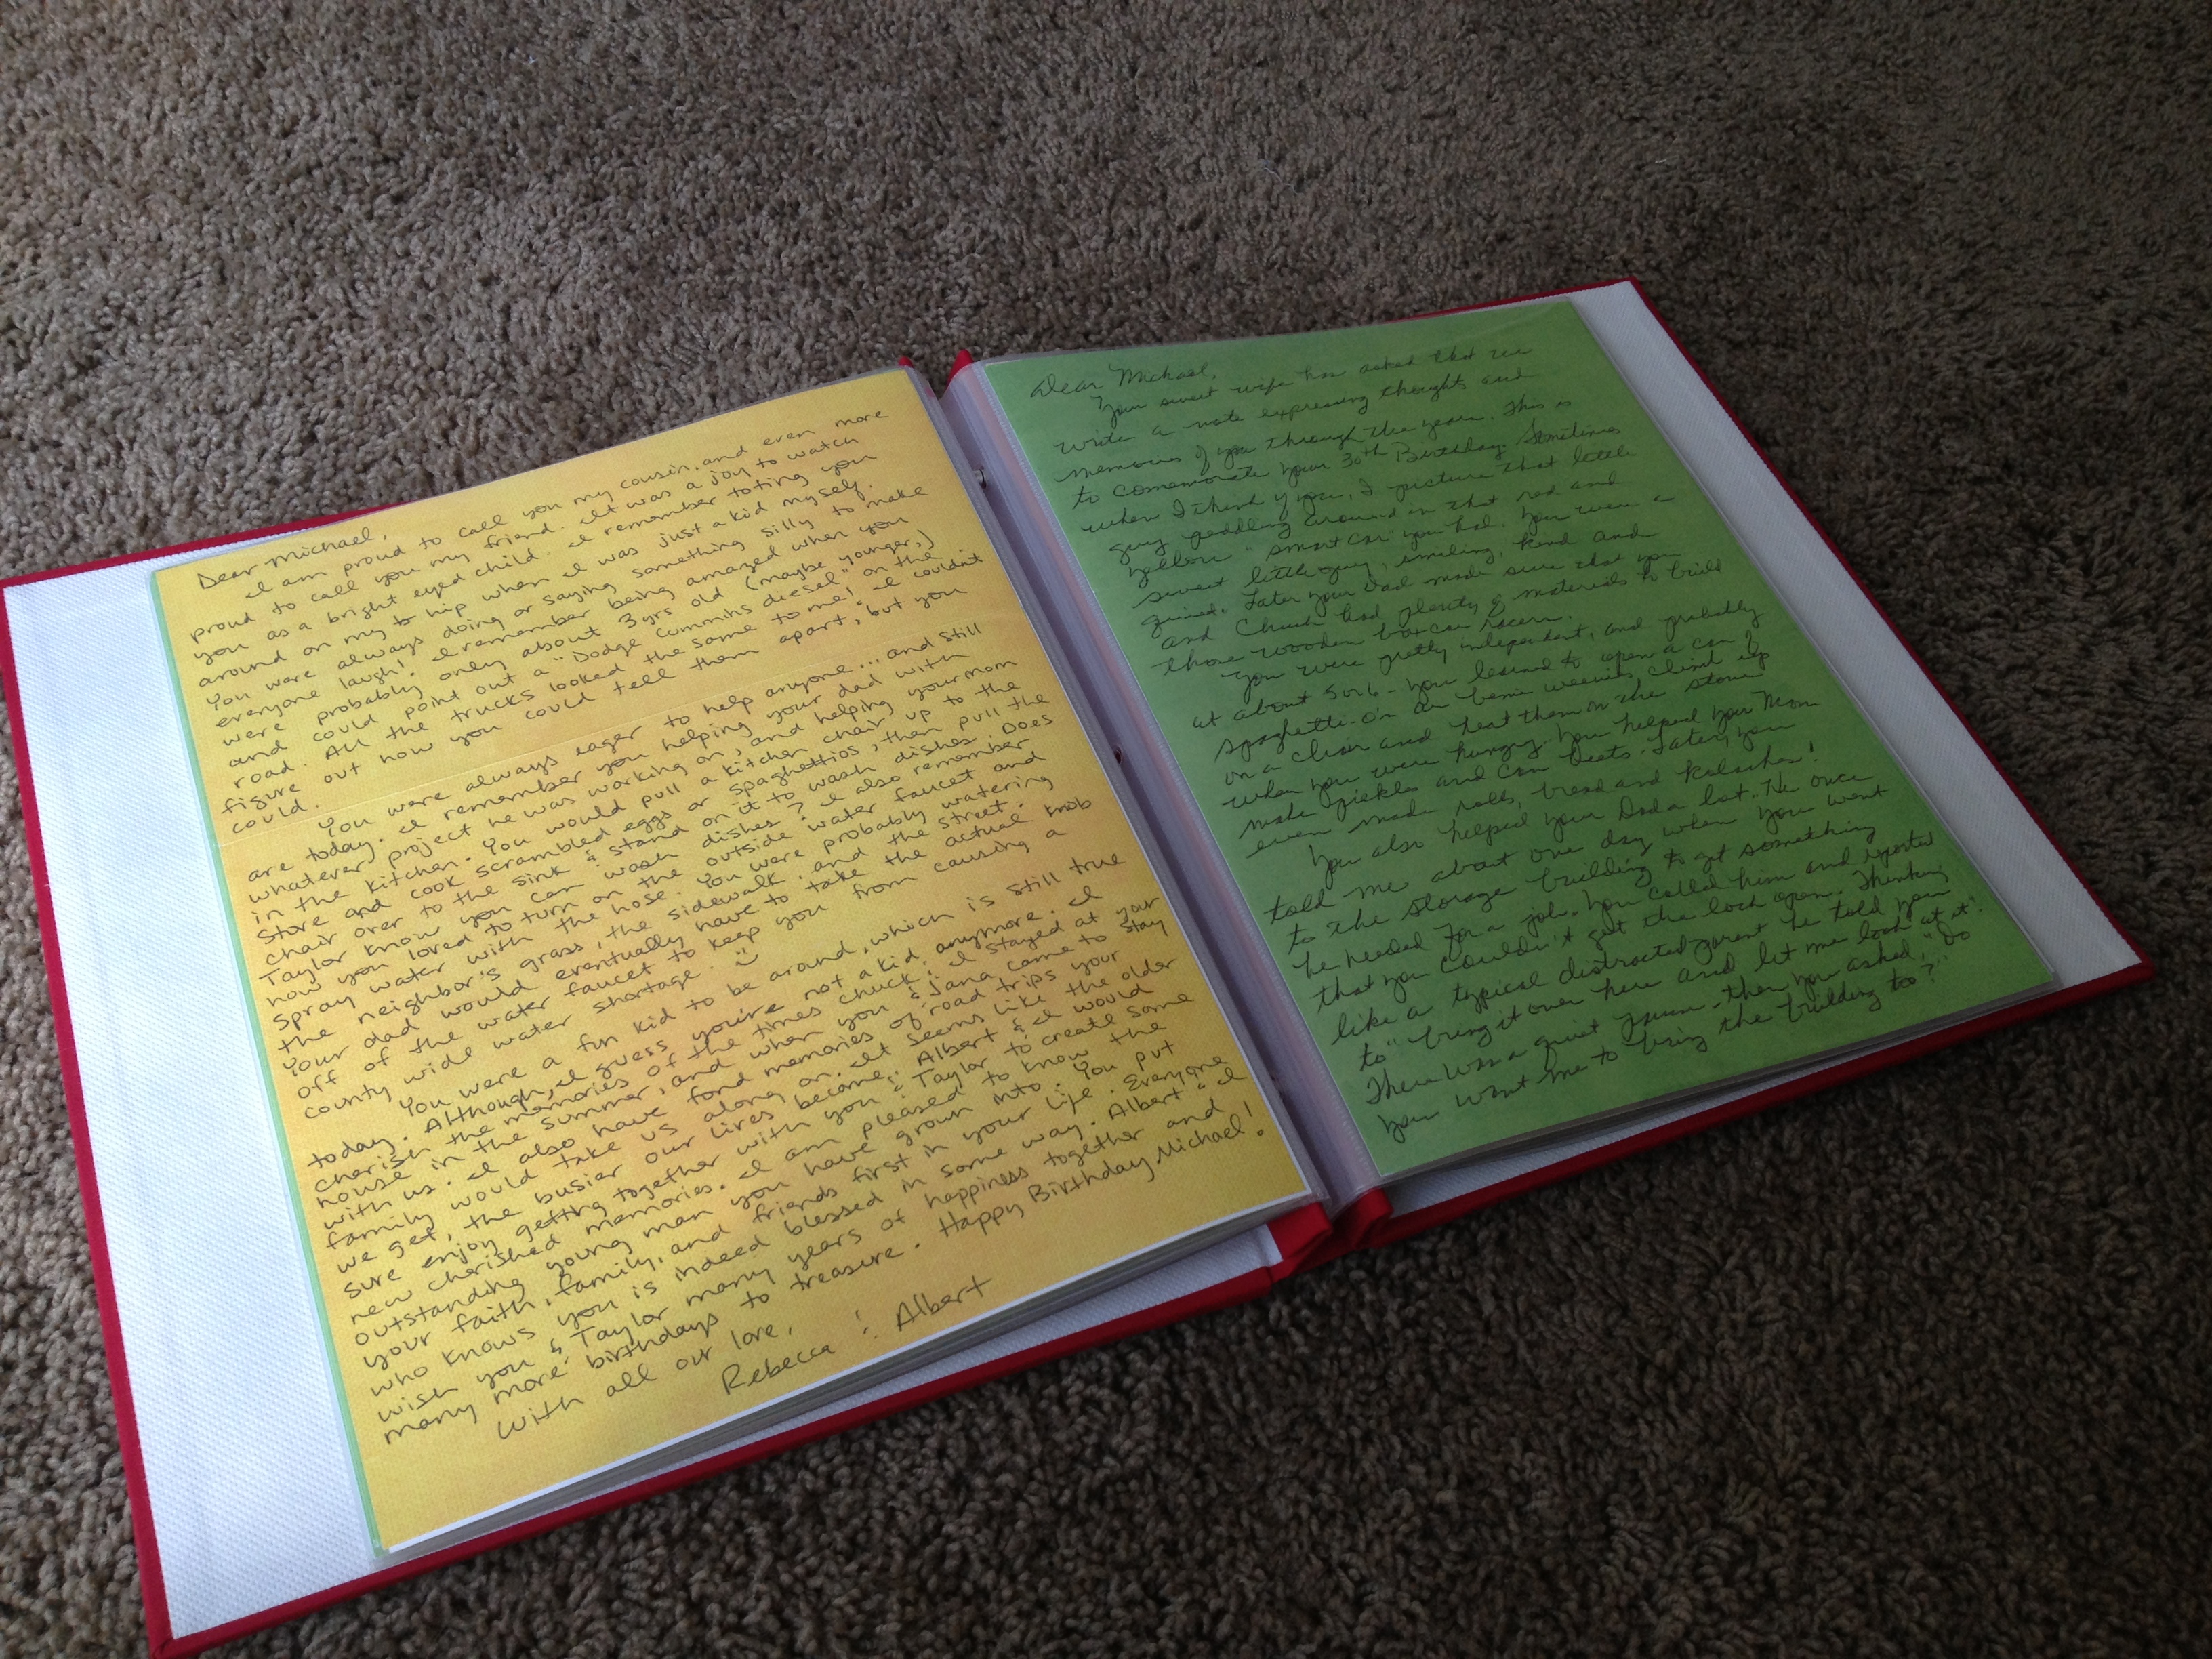 Dear Michael,
I am proud to call you my cousin, and even more
proud to call you my friend. It was a joy to watch
you as a bright eyed child. I remember toting you
around on my hip when I was just a kid myself.
You were always doing or saying something silly to make
everyone laugh! I remember being amazed when you
were probably only about 3yrs old (maybe younger,)
and could point out a "Dodge Cummins diesel" on the
road. All the trucks looked the same to me! I couldn't
figure out how you could tell them apart, but you
could.
You were always eager to help anyone... and still
are today. I remember you helping your dad with
whatever project he was working on, and helping your mom
in the kitchen. You would pull a kitchen chair up to the
stove and cook scrambled eggs or spaghettios, then pull the
chair over to the sink & stand on it to wash dishes. Does
Taylor know you can wash dishes? I also remember
how you loved to turn on the outside water faucet and
spray water with the hose. You were probably watering
the neighbor's grass, the sidewalk, and the street.
Your dad would eventually have to take the actual knob
off of the water faucet to keep you from causing a
county wide water shortage.
You were a fun kid to be around, which is still true
today. Although, I guess you're not a kid anymore. I
cherish the memories of the times Chuck & I stayed at your
house in the summer, and when you & Jana came to stay
with us. I also have fond memories of road trips your
family would take us along on. It seems like the older
we get, the busier our lives become. Albert & I would
sure enjoy getting together with you & Taylor to create some
new cherished memories. I am pleased to know the
outstanding young man you have grown into. You put
your faith, family, and friends first in your life. Everyone
who knows you is indeed blessed in some way. Albert & I
wish you & Taylor many years of happiness together and
many more birthdays to treasure. Happy Birthday Michael!
With all our love,
Rebecca & Albert
Dear Michael,
Your sweet wife has asked that we
write a note expressing thoughts and
memories of you through the years. This is
to comemorate your 30th Birthday. Sometimes
when I think of you, I picture that little
guy peddling around in that red and
yellow "smart car" you had. You were a
sweet little guy, smiling, kind and
Later your Dad made sure that you
and Chuck had plenty of materials to build
those wooden box car racers.
You were pretty independent, and probably
at about 5 or 6 - you learned to open a can of
spaghetti-o's or beenie weenies climb up
on a chair and heat them on the stove
when you were hungry. You helped your Mom
make pickles and can beets. Later, you
even made rolls, bread and kolaches!
You also helped your Dad a lot. He once
told me about one day when you went
to the storage building to get something
he needed for a job. You called him and reported
that you couldn't get the lock open. Thinking
like a typical distracted parent he told you
to "bring it over here and let me look at it".
There was a quiet pause - then you asked, "Do
you want me to bring the building too?"